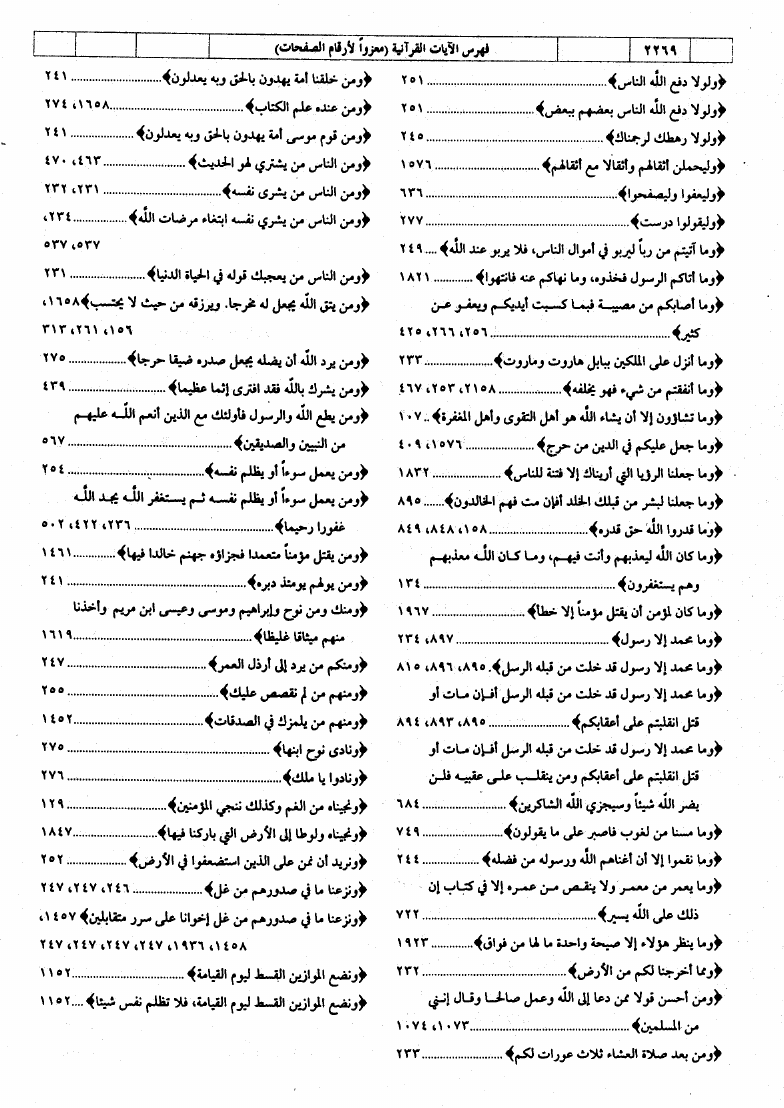 ٢٢٦٩ فهرس الآيات القرآنية (معزواً لأرقام الصفحات)
﴿ولولا دفع الله الناس﴾ ............ ٢٥١
﴿ولولا دفع الله الناس بعضهم ببعض﴾ ............ ٢٥١
﴿ولولا رهطك لرجمناك﴾ ............ ٢٤٥
﴿وليحملن أثقالهم وأثقالا مع أثقالهم﴾ ............ ١٥٧٦
﴿وليعفوا وليصفحوا﴾ ............ ٦٣٦
﴿وليقولوا درست﴾ ............ ٢٧٧
﴿وما آتيتم من رباً ليربو في أموال الناس، فلا يربو عند الله﴾ .... ٢٤٩
﴿وما أتاكم الرسول فخذوه، وما نهاكم عنه فانتهوا﴾ ............ ١٨٢١
﴿وما أصابكم من مصيبة فبما كسبت أيديكم ويعفو عن
كثير﴾ ............ ٢٥٦، ٢٦٦، ٤٢٥
﴿وما أنزل على الملكين ببابل هاروت وماروت﴾ ............ ٢٣٣
﴿وما أنفقتم من شيء فهو يخلفه﴾ ............ ٢١٥٨، ٢٥٣، ٤٦٧
﴿وما تشاؤون إلا أن يشاء الله هو أهل التقوى وأهل المغفرة﴾ .. ١٠٧
﴿وما جعل عليكم في الدين من حرج﴾ ............ ١٥٧٦، ٤٠٩
﴿وما جعلنا الرؤيا التي أريناك إلا فتنة للناس﴾ ............ ١٨٣٢
﴿وما جعلنا لبشر من قبلك الخلد أفإن مت فهم الخالدون﴾ ..... ٨٩٥
﴿وما قدروا الله حق قدره﴾ ............ ١٥٨، ٨٤٨، ٨٤٩
﴿وما كان الله ليعذبهم وأنت فيهم، وما كان الله معذبهم
وهم يستغفرون﴾ ............ ١٣٤
﴿وما كان لمؤمن أن يقتل مؤمناً إلا خطأ﴾ ............ ١٩٦٧
﴿وما محمد إلا رسول﴾ ............ ٨٩٧، ٢٣٤
﴿وما محمد إلا رسول قد خلت من قبله الرسل﴾. ٨٩٥، ٨٩٦، ٨١٥
﴿وما محمد إلا رسول قد خلت من قبله الرسل أفإن مات أو
قتل انقلبتم على أعقابكم﴾ ............ ٨٩٥، ٨٩٣، ٨٩٤
﴿وما محمد إلا رسول قد خلت من قبله الرسل أفإن مات أو
قتل انقلبتم على أعقابكم ومن ينقلب على عقبيه فلن
يضر الله شيئاً وسيجزي الله الشاكرين﴾ ............ ٦٨٤
﴿وما مسنا من لغوب فاصبر على ما يقولون﴾ ............ ٧٤٩
﴿وما نقموا إلا أن أغناهم الله ورسوله من فضله﴾ ............ ٢٤٤
﴿وما يعمر من معمر ولا ينقص من عمره إلا في كتاب إن
ذلك على الله يسير﴾ ............ ٧٢٢
﴿وما ينظر هؤلاء إلا صيحة واحدة ما لها من فواق﴾ ............ ١٩٢٣
﴿ومما أخرجنا لكم من الأرض﴾ ............ ٢٣٢
﴿ومن أحسن قولا ممن دعا إلى الله وعمل صالحا وقال إنني
من المسلمين﴾ ............ ١٠٧٣، ١٠٧٤
﴿ومن بعد صلاة العشاء ثلاث عورات لكم﴾ ............ ٢٣٣
﴿ومن خلقنا أمة يهدون بالحق وبه يعدلون﴾ ............ ٢٤١
﴿ومن عنده علم الكتاب﴾ ............ ١٦٥٨، ٢٧٤
﴿ومن قوم موسى أمة يهدون بالحق وبه يعدلون﴾ ............ ٢٤١
﴿ومن الناس من يشتري لهو الحديث﴾ ............ ٤٦٣، ٤٧٠
﴿ومن الناس من يشرى نفسه﴾ ............ ٢٣١، ٢٣٢
﴿ومن الناس من يشري نفسه ابتغاء مرضات الله﴾ ............ ٢٣٤،
٥٣٧، ٥٣٧
﴿ومن الناس من يعجبك قوله في الحياة الدنيا﴾ ............ ٢٣١
﴿ومن يتق الله يجعل له مخرجا. ويرزقه من حيث لا يحتسب﴾ ١٦٥٨،
١٥٦، ٢٦١، ٣١٣
﴿ومن يرد الله أن يضله يجعل صدره ضيقا حرجا﴾ ............ ٢٧٥
﴿ومن يشرك بالله فقد افترى إثما عظيما﴾ ............ ٤٣٩
﴿ومن يطع الله والرسول فأولئك مع الذين أنعم الله عليهم
من النبيين والصديقين﴾ ............ ٥٦٧
﴿ومن يعمل سوءاً أو يظلم نفسه﴾ ............ ٢٥٤
﴿ومن يعمل سوءاً أو يظلم نفسه ثم يستغفر الله يجد الله
غفورا رحيما﴾ ............ ٢٣٦، ٤٢٢، ٥٠٢
﴿ومن يقتل مؤمناً متعمدا فجزاؤه جهنم خالدا فيها﴾ ............ ١٤٦١
﴿ومن يولهم يومئذ دبره﴾ ............ ٢٤١
﴿ومنك ومن نوح وإبراهيم وموسى وعيسى ابن مريم وأخذنا
منهم ميثاقا غليظا﴾ ............ ١٦١٩
﴿ومنكم من يرد إلى أرذل العمر﴾ ............ ٢٤٧
﴿ومنهم من لم نقصص عليك﴾ ............ ٢٥٥
﴿ومنهم من يلمزك في الصدقات﴾ ............ ١٤٥٢
﴿ونادى نوح ابنها﴾ ............ ٢٧٥
﴿ونادوا يا ملك﴾ ............ ٢٧٦
﴿ونجيناه من الغم وكذلك ننجي المؤمنين﴾ ............ ١٢٩
﴿ونجيناه ولوطا إلى الأرض التي باركنا فيها﴾ ............ ١٨٤٧
﴿ونريد أن نمن على الذين استضعفوا في الأرض﴾ ............ ٢٥٢
﴿ونزعنا ما في صدورهم من غل﴾ ............ ٢٤٦، ٢٤٧، ٢٤٧
﴿ونزعنا ما في صدورهم من غل إخوانا على سرر متقابلين﴾ ..... ١٤٥٧،
١٤٥٨، ١٩٣٦، ٢٤٧، ٢٤٧، ٢٤٧، ٢٤٧
﴿ونضع الموازين القسط ليوم القيامة﴾ ............ ١١٥٢
﴿ونضع الموازين القسط ليوم القيامة، فلا تظلم نفس شيئا﴾ .... ١١٥٢